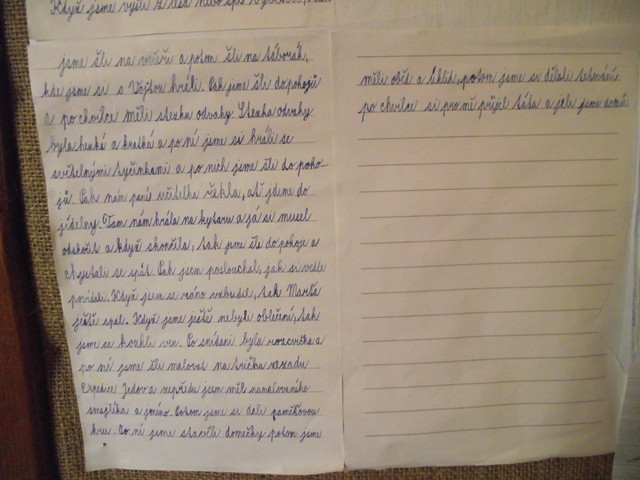 Když jsme vyšli z lesa nebo spíš
jsme šli na večeři a potom šli na táborák,
kde jsme si s Vojtou hráli. Pak jsme šli do pokojů
a po chvilce měli stezka odvahy. Stezka odvahy
byla hezká a krátká a po ní jsme si hráli se
svítelnými tyčinkami a po nich jsme šli do poko-
jů. Pak nám paní učitelka řekla, ať jdeme do
jídelny. Tam nám hrála na kytaru a já si musel
odskočit a když skončila, tak jsme šli do pokoje a
chystali se spát. Pak jsem poslouchal, jak si vedle
povídali. Když jsem se ráno vzbudil, tak
ještě spal. Když jsme ještě nebyli oblečení, tak
jsme se koukli ven. Po snídani byla rozcvička a
po ní jsme šli malovat na trička vzadu
Expedice Jedov a vepředu jsem měl namalovaného
smajlíka a jméno. Potom jsme se dali paměťovou
hru. Po ní jsme stavěli domečky potom jsme
měli oběd a úklid, potom jsme si dělali testování
po chvilce si pro mě přijel táta a jeli jsme domů.